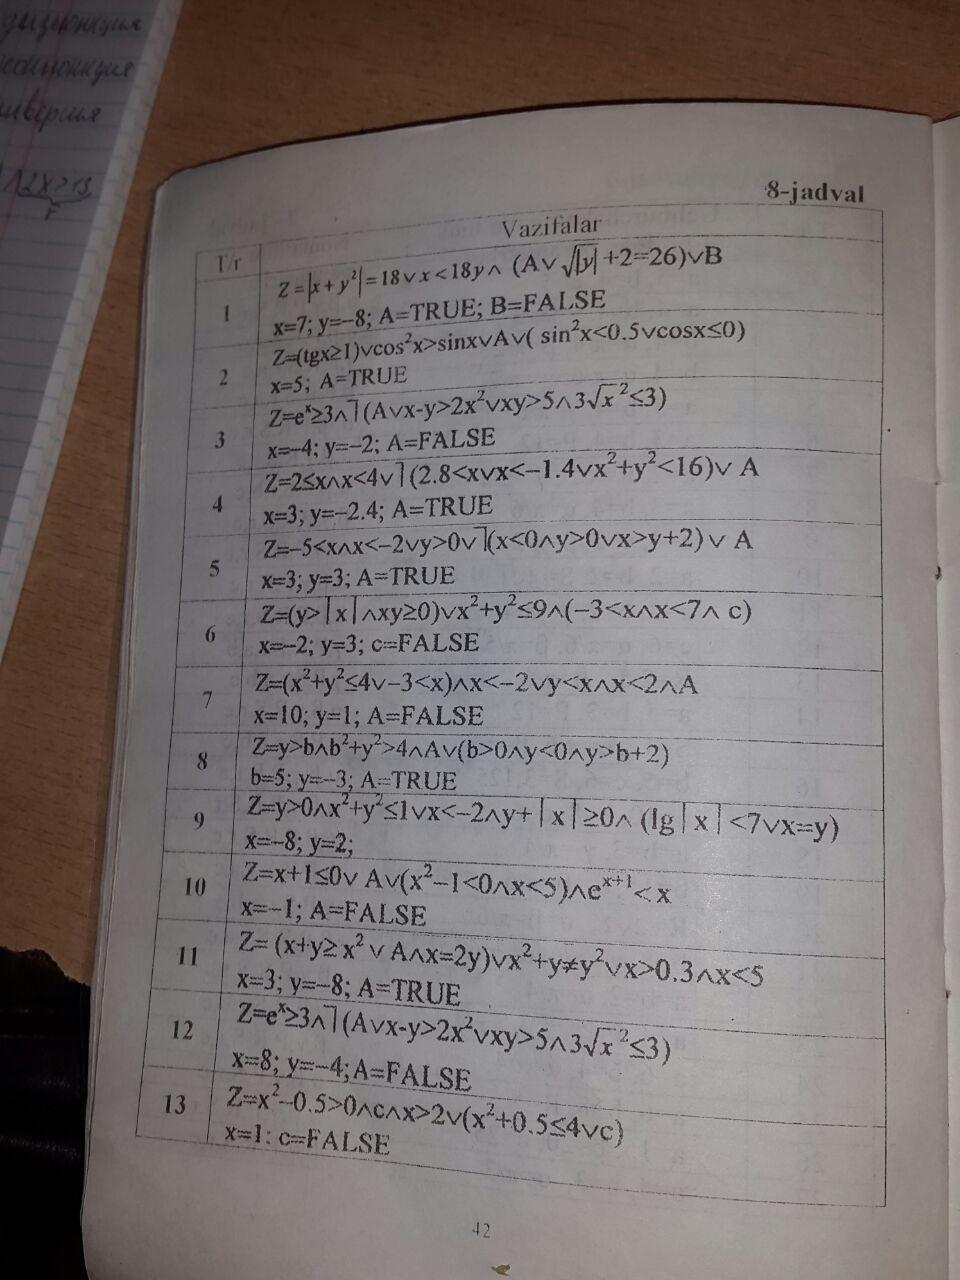 дизъюнкция
конъюнкция
инверсия
∧ 2X>13
F
8-jadval
T/r Vazifalar
1 Z=|x+y²|=18∨x<18y∧ (A∨√|y|+2=26)∨B
x=7; y=–8; A=TRUE; B=FALSE
2 Z=(tgx≥1)∨cos²x>sinx∨A∨( sin²x<0.5∨cosx≤0)
x=5; A=TRUE
3 Z=eˣ≥3∧⏋(A∨x-y>2x²∨xy>5∧3√x²≤3)
x=–4; y=–2; A=FALSE
4 Z=2≤x∧x<4∨⏋(2.8<x∨x<–1.4∨x²+y²<16)∨ A
x=3; y=–2.4; A=TRUE
5 Z=–5<x∧x<–2∨y>0∨⏋(x<0∧y>0∨x>y+2)∨ A
x=3; y=3; A=TRUE
6 Z=(y>|x|∧xy≥0)∨x²+y²≤9∧(–3<x∧x<7∧ c)
x=–2; y=3; c=FALSE
7 Z=(x²+y²≤4∨–3<x)∧x<–2∨y<x∧x<2∧A
x=10; y=1; A=FALSE
8 Z=y>b∧b²+y²>4∧A∨(b>0∧y<0∧y>b+2)
b=5; y=–3; A=TRUE
9 Z=y>0∧x²+y²≤1∨x<–2∧y+|x|≥0∧ (lg|x|<7∨x=y)
x=–8; y=2;
10 Z=x+1≤0∨ A∨(x²–1<0∧x<5)∧eˣ⁺¹<x
x=–1; A=FALSE
11 Z= (x+y≥x² ∨ A∧x=2y)∨x²+y≠y²∨x>0.3∧x<5
x=3; y=–8; A=TRUE
12 Z=eˣ≥3∧⏋(A∨x-y>2x²∨xy>5∧3√x²≤3)
x=8; y=–4;A=FALSE
13 Z=x²–0.5>0∧c∧x>2∨(x²+0.5≤4∨c)
x=1: c=FALSE
42